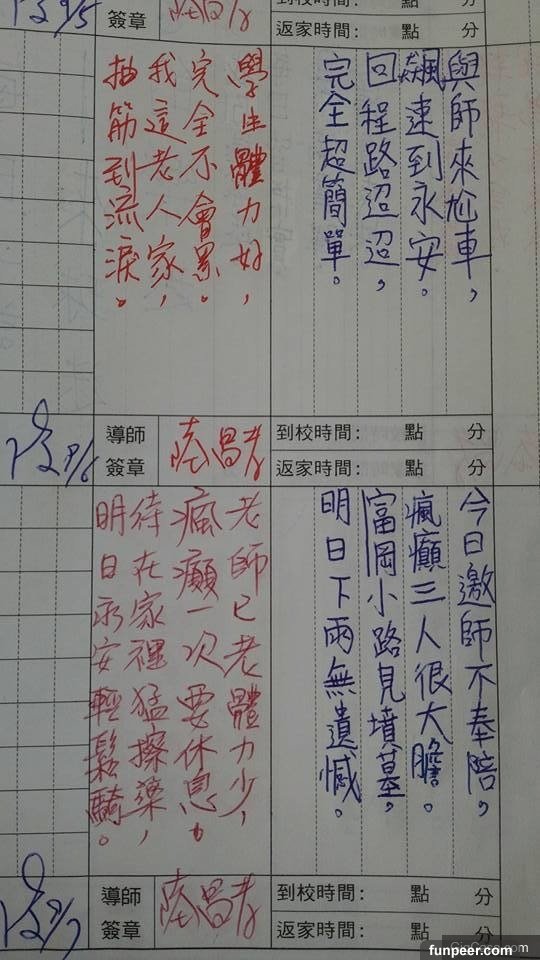 9/5
簽章
到校時間： 點 分
返家時間： 點 分
與師來尬車，
飆速到永安。
回程路迢迢，
完全超簡單。
學生體力好，
完全不會累。
我這老人家，
抽筋到流淚。
9/6
導師
簽章
到校時間： 點 分
返家時間： 點 分
今日邀師不奉陪，
瘋癲三人很大膽。
富岡小路見墳墓，
明日下雨無遺憾。
老師已老體力少，
瘋癲一次要休息。
待在家裡猛擦藥，
明日永安輕鬆騎。
9/7
導師
簽章
到校時間： 點 分
返家時間： 點 分
funpeer.com